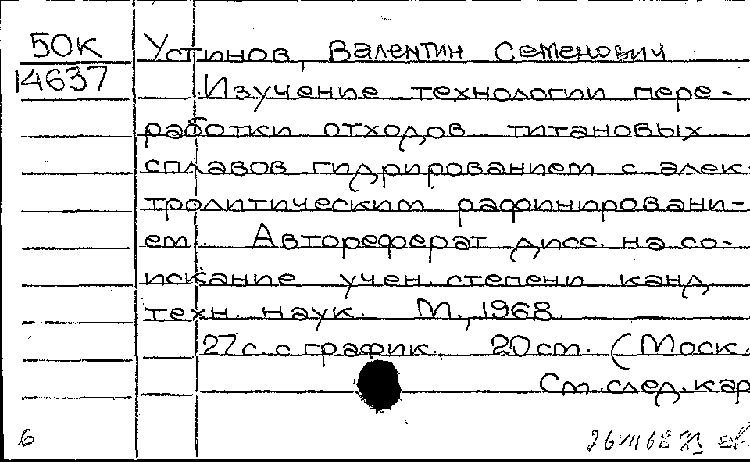 50К Устинов, Валентин Семенович
14637
Изучение технологии пере-
работки отходов титановых
сплавов гидрированием с элек-
тролитическим рафинировани-
ем. Автореферат дисс. на со-
искание учен. степени канд.
техн. наук. М., 1968
27 с. с график. 20 см. (Моск.
См. след. кар
6